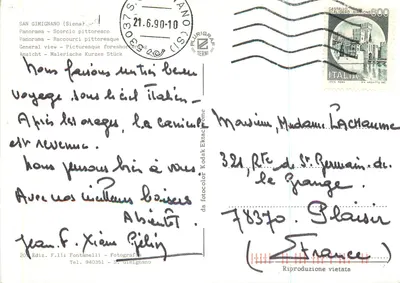 SAN GIMIGNANO (Siena)
Panorama - Scorcio pittoresco
Panorama - Raccourci pittoresque
General view - Picturesque foreshor
Ansicht - Malerische Kurze Stück
53037 S. GIMIGNANO (SI)
21.6.90-10
800
ITALIA
Nous faisons un très beau
voyage, sous le ciel italien -
Après les orages, la canicule
est revenue.
Nous pensons bien à vous.
Avec nos meilleurs baisers
A bientôt.
Jean-F. Xième
Monsieur, Madame LACHAUME
321, Rte de St. Germain-de-
la Grange.
78370 - Plaisir
(France)
da fotocolor Kodak Ektachrome
Ediz. F.lli Fontanelli - Fotografia
Tel. 940351 - S. Gimignano
Riproduzione vietata